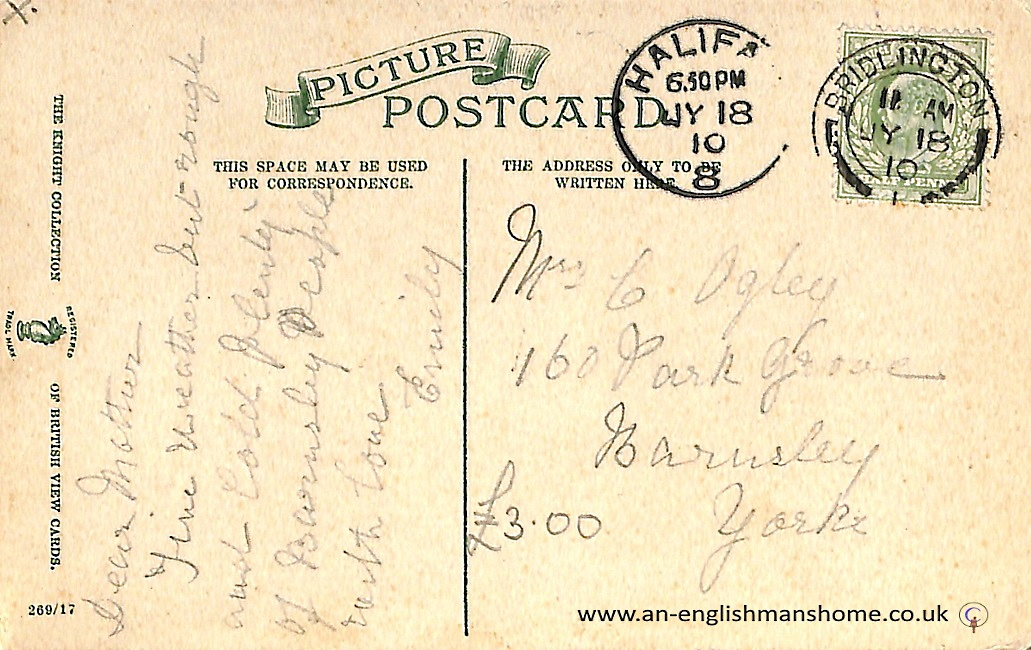 X.
PICTURE
POSTCARD
HALIFA
6.50 PM
JY 18
10
8
BRIDLINGTON
11 AM
JY 18
10
THIS SPACE MAY BE USED
FOR CORRESPONDENCE.
THE ADDRESS ONLY TO BE
WRITTEN HERE.
THE KNIGHT COLLECTION
REGISTERED
TRADE MARK.
OF BRITISH VIEW CARDS.
269/17
Dear Mother
Fine weather but rough
and Cold. Plenty
of Barnsley People
with love
Emily
Mrs C Ogley
160 Park Grove
Barnsley
Yorks
£3.00
www.an-englishmanshome.co.uk ©